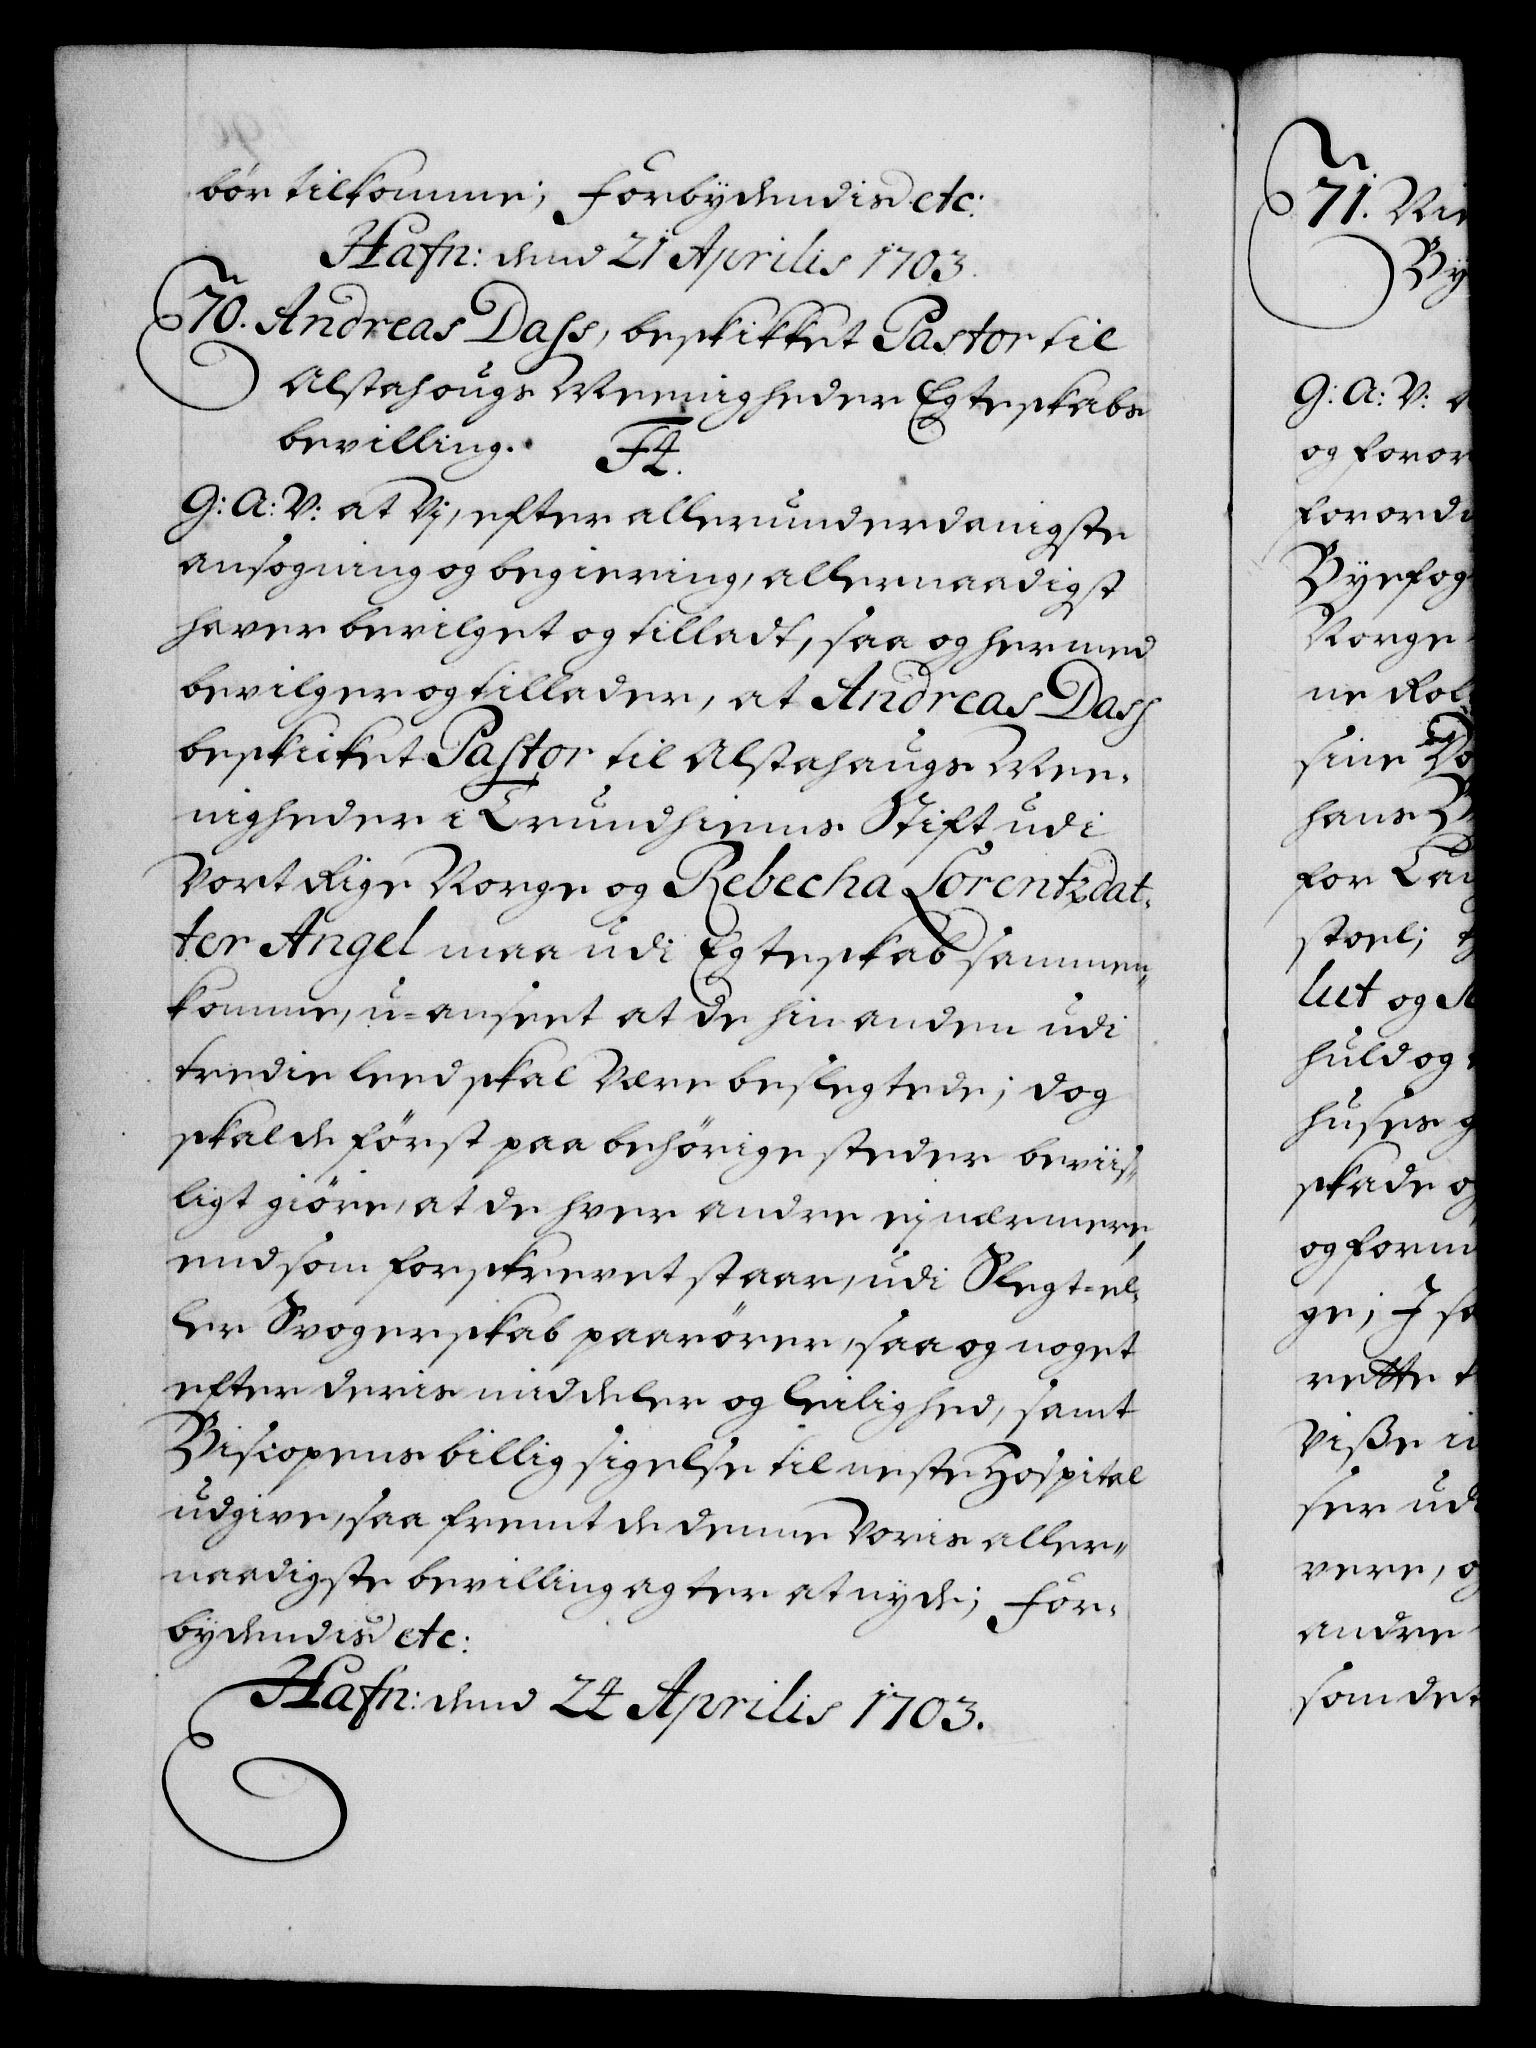 bør tilkomme; Forbydendis etc:
Hafn: dend 21 Aprilis 1703.
70. Andreas Dass, beskikket Pastor til
Alstahougs Meenigheder Egteskabs
bevilling. F4.
G: A: V: at Vj, efter allerunderdanigste
ansogning og begiering, allernaadigst
haver bevilget og tilladt, saa og hermed
bevilger og tillader, at Andreas Dass
beskicket Pastor til Alstahaugs Mee-
nigheder i Trundhiems Stift udi
Vort Rige Norge og Rebecha Lorentzdat-
ter Angel maa udi Egteskab sammen-
komme, u-anseet at de hin anden udi
tredie leed skal være beslegtede; dog
skal de först paa behörige steder beviis-
ligt giöre, at de hver andre ej nærmere,
end som forskrevet staar, udi Slegt- el-
ler Svogerskab paarörer, saa og noget
efter deris middeler og leilighed, samt
Biscopens billig sigelse til neste Hospital
udgive, saa fremt de denne Voris aller-
naadigste bevilling agter at nyde; For-
bydendis etc:
Hafn: dend 24 Aprilis 1703.
71.
G: A: V:
og foror
forordn
Byefog
Norge
ne
sine
hans
for
stoel;
lut og
huld og
huses
skade
og
ge; J
rette
visse
ser ud
vere,
andre
som det